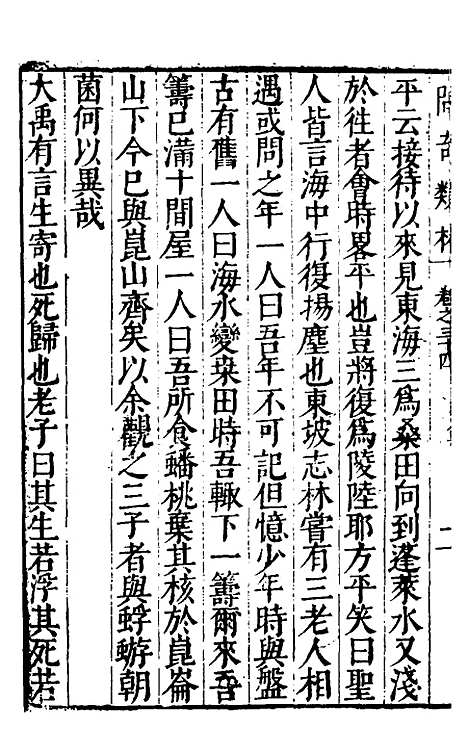 問奇類林 卷之三十四 二
平云接待以來見東海三爲桑田向到蓬萊水又淺
於徃者會時畧平也豈將復爲陵陸耶方平笑曰聖
人皆言海中行復揚塵也東坡志林嘗有三老人相
遇或問之年一人曰吾年不可記但憶少年時與盤
古有舊一人曰海水變桒田時吾輙下一籌爾來吾
籌已滿十間屋一人曰吾所食蟠桃棄其核於崑崙
山下今已與崑山齊矣以余觀之三子者與蜉蝣朝
菌何以異哉
大禹有言生寄也死歸也老子曰其生若浮其死若